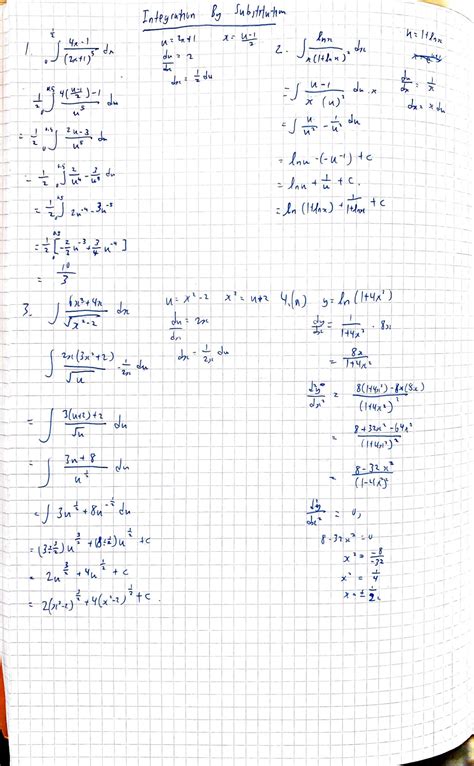 Integration By Substitution
1. ∫ (4x-1)/(2x+1)^5 dx
u = 2x+1    x = (u-1)/2
du/dx = 2
dx = 1/2 du
= 1/2 ∫ (2u-3)/u^5 du
= 1/2 ∫ 2/u^4 - 3/u^5 du
= 1/2 ∫ 2u^-4 - 3u^-5
= 1/2 [-2/3 u^-3 + 3/4 u^-4]
2. ∫ lnx/(x(1+lnx)^2) dx
u = 1+lnx
du/dx = 1/x
dx = x du
= ∫ (u-1)/(x (u)^2) du . x
= ∫ u/u^2 - 1/u^2 du
= lnu - (-u^-1) + c
= lnu + 1/u + c.
= ln (1+lnx) + 1/(1+lnx) + c
3. ∫ (6x^3+4x)/√(x^2-2) dx
u = x^2-2    x^2 = u+2
du/dx = 2x
dx = 1/2x du
∫ 2x(3x^2+2)/√u . 1/2x du
= ∫ (3(u+2)+2)/√u du
= ∫ (3u+8)/u^1/2 du
= ∫ 3u^1/2 + 8u^-1/2 du
= (3÷3/2)u^3/2 + (8÷1/2)u^1/2 + c
= 2(x^2-2)^3/2 + 4(x^2-2)^1/2 + c.
y = ln (1+4x^2)
dy/dx = 1/(1+4x^2) . 8x
= 8x/(1+4x^2)
d^2y/dx^2 = (8(1+4x^2) - 8x(8x))/(1+4x^2)^2
= (8+32x^2-64x^2)/(1+4x^2)^2
d^2y/dx^2 = 0,
8-32x^2 = 0
x^2 = -8/-32
x^2 = 1/4
x = ± 1/2.